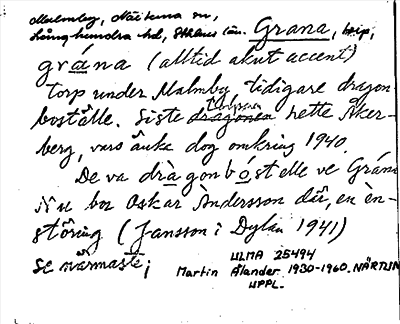 Malmby, Närtuna sn,
Långhundra hd, Sthlms län. Grana, torp,
grána (alltid akut accent)
Torp under Malmby, tidigare dragon-
boställe. Siste dragonen hette Åker-
berg, vars änka dog omkring 1940.
De va dràgonbóstelle ve Grána
Nu bor Oskar Àndersson dä̀r, en èn-
störing (Jansson i Dylan 1941)
Se närmaste;
ULMA 25494
Martin Ålander 1930-1960. NÄRTUNA
UPPL.